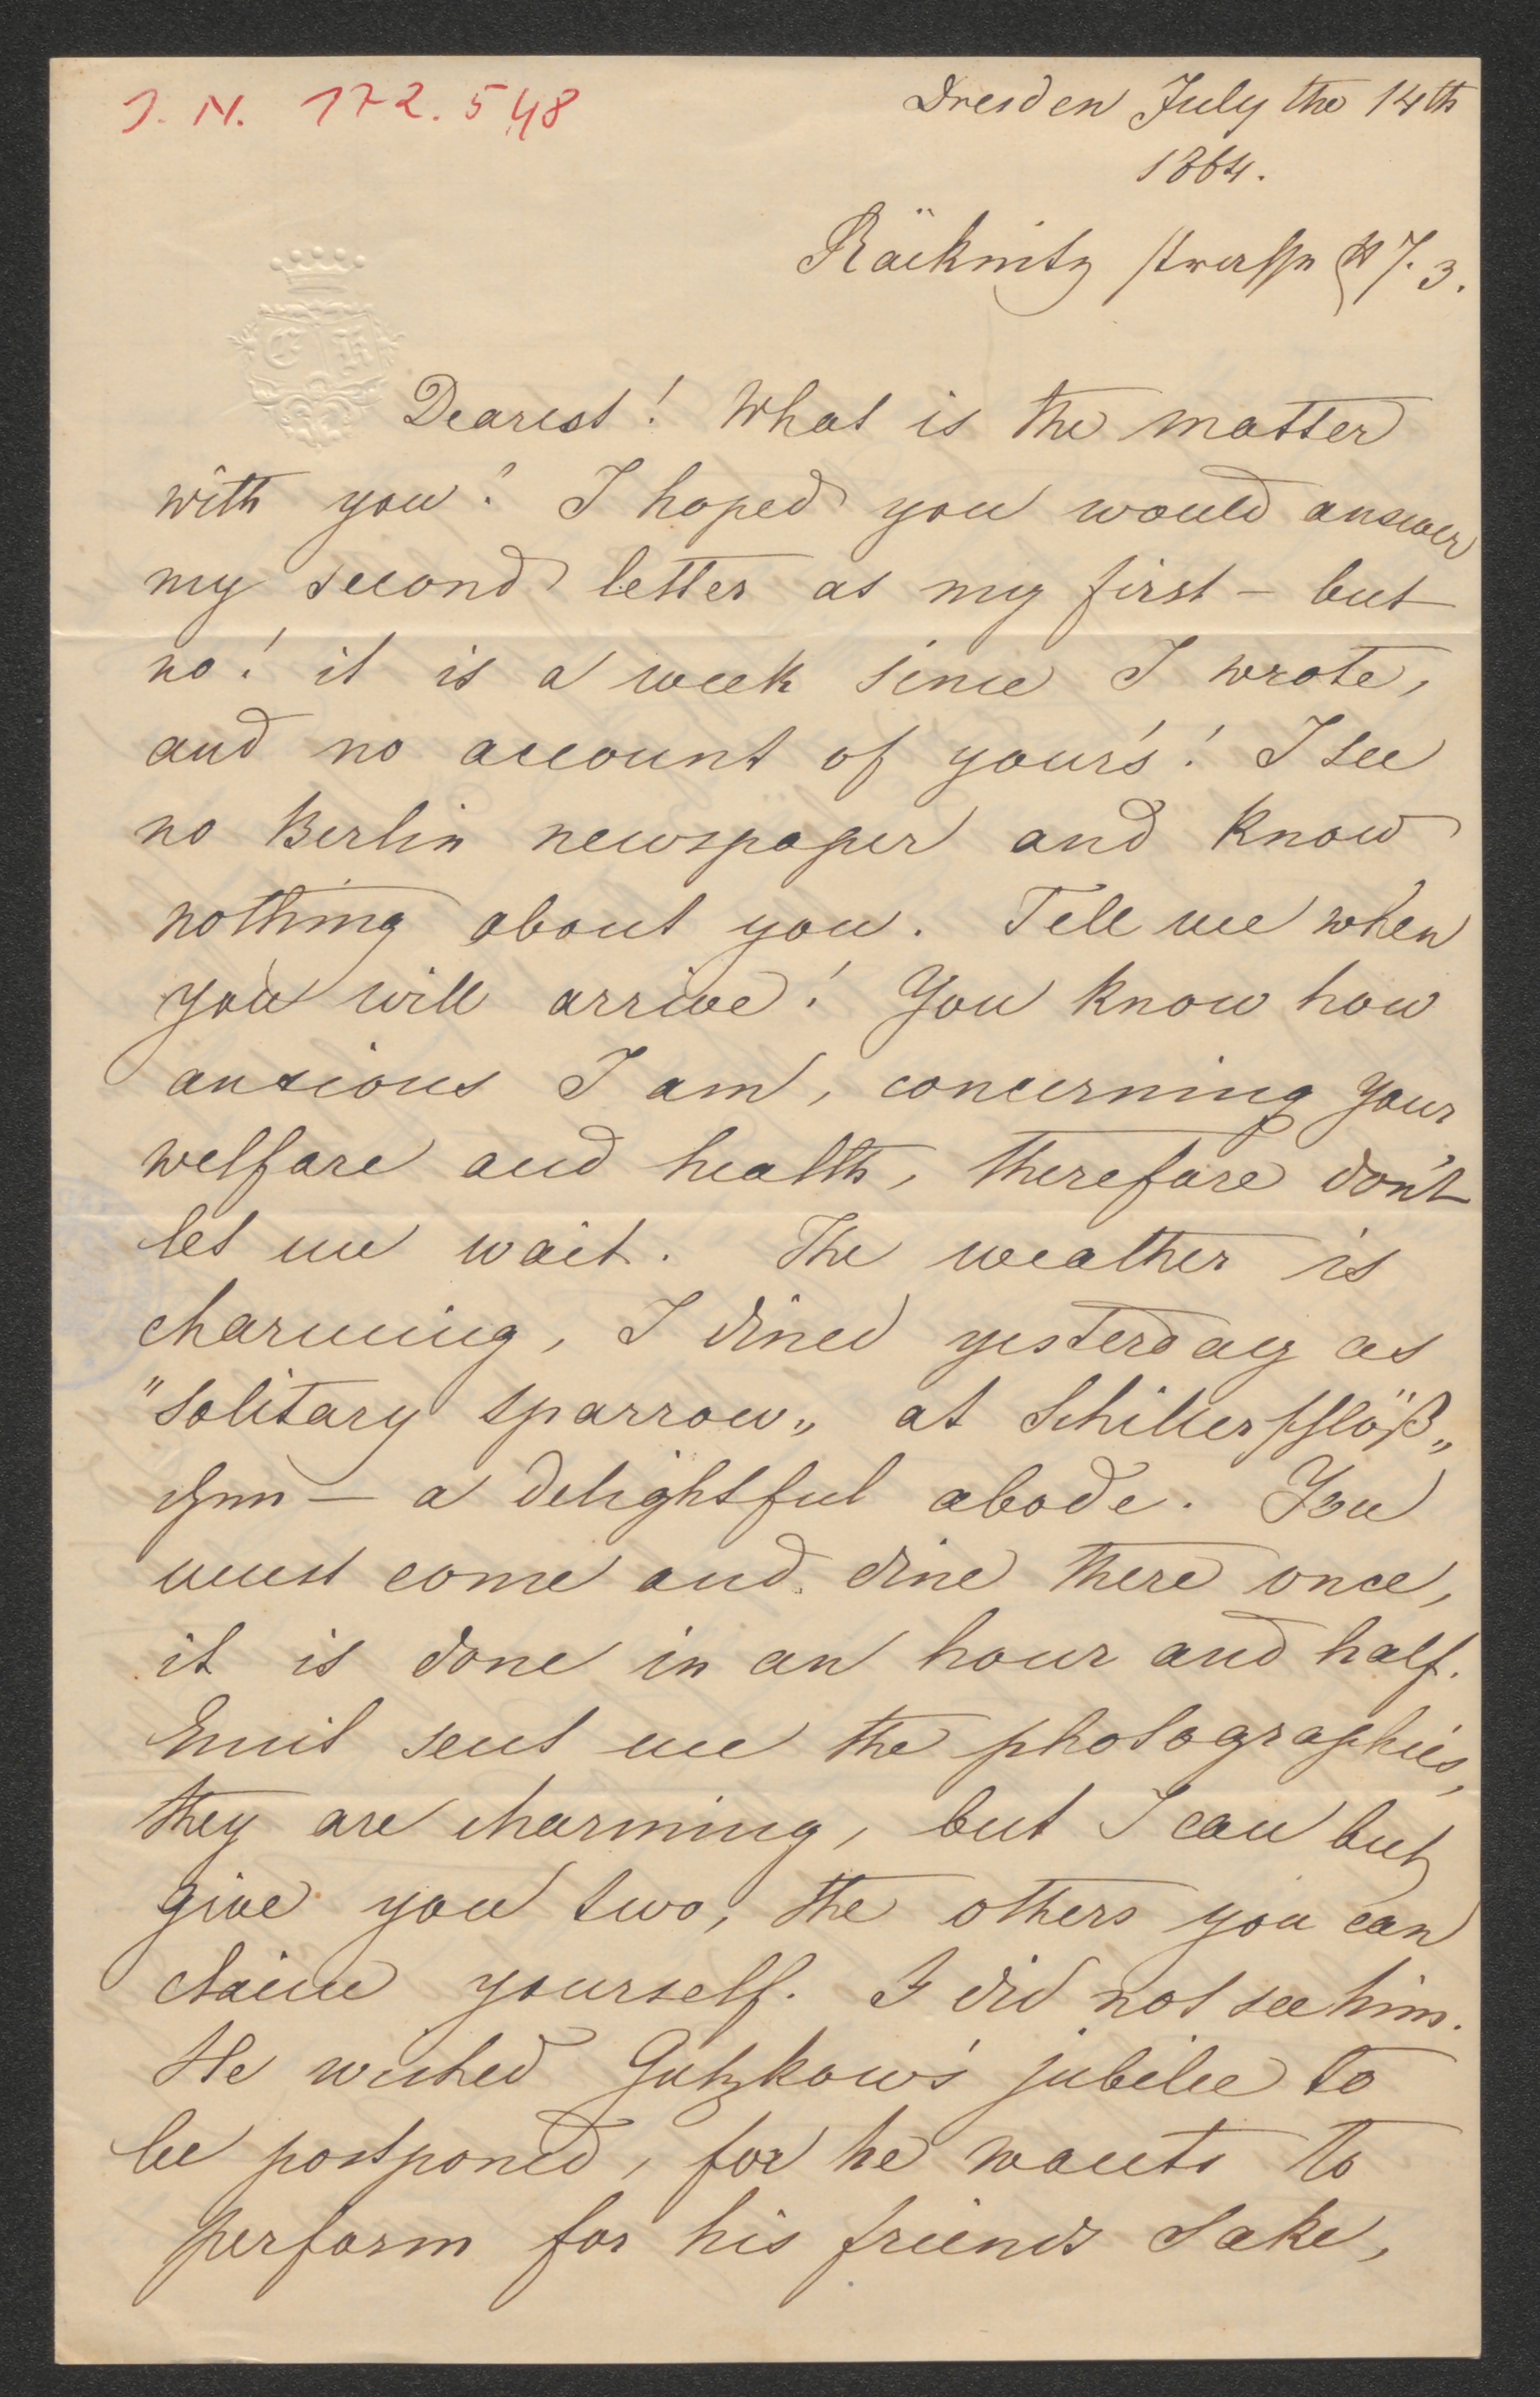 J. N. 172.548
Dresden July the 14th
1864.
Räcknitz strasse 7. 3.
E K
Dearest! What is the matter
with you? I hoped you would answer
my second letter as my first – but
no! it is a week since I wrote,
and no account of your's! I see
no Berlin newspaper and know
nothing about you. Tell me when
you will arrive! You know how
anxious I am, concerning your
welfare and health, therefore don't
let me wait. The weather is
charming, I dined yesterday as
"solitary sparrow„ at Schillerschlöß„
– a delightful abode. You
must come and dine there once,
it is done in an hour and half.
Emil sent me the photographies,
they are charming, but I can but
give you two, the others you can
claim yourself. I did not see him.
He wished Gutzkow's jubilee to
be postponed, for he wants to
perform for his friends sake,